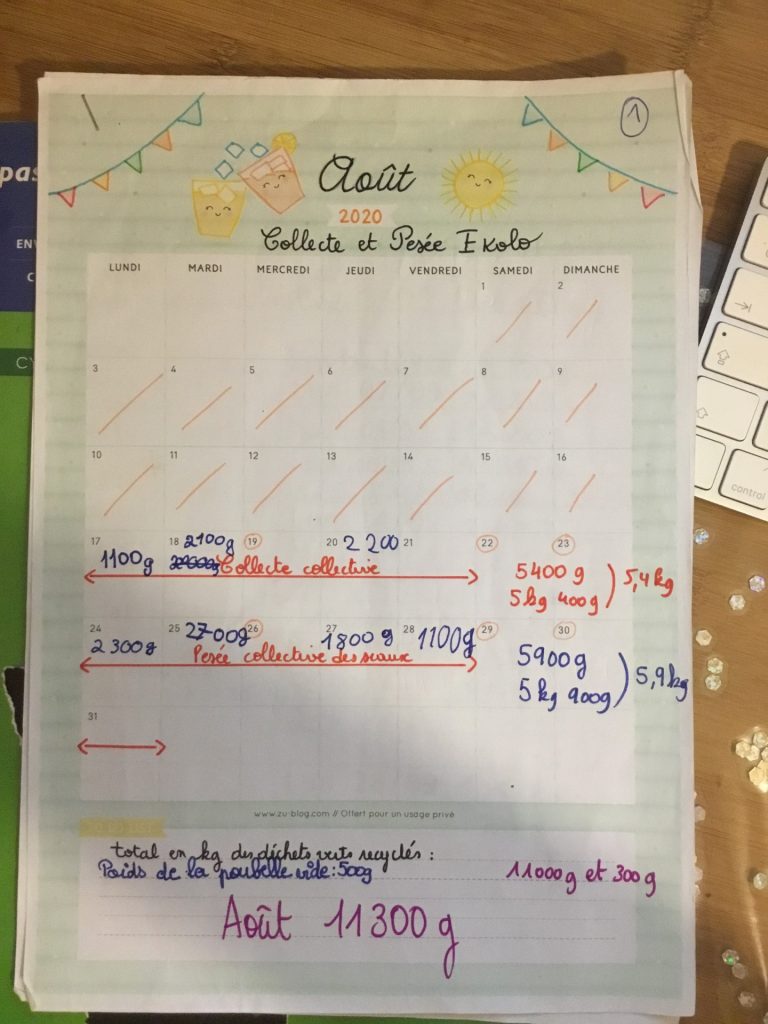 1
Août
2020
Collecte et Pesée Ekolo
LUNDI MARDI MERCREDI JEUDI VENDREDI SAMEDI DIMANCHE
1 2
3 4 5 6 7 8 9
10 11 12 13 14 15 16
17 18 2100g 19 20 2 200 21 22 23
1100g Collecte collective 5400 g 5,4 kg
5 kg 400g
24 25 2700g 26 27 28 29 30
2 300g 1800 g 1100g 5900g
Pesée collective des seaux 5 kg 900g 5,9 kg
31
www.zu-blog.com // Offert pour un usage privé
total en kg des déchets verts recyclés :
Poids de la poubelle vide: 500g 11000g et 300g
Août 11300 g
pas
EN
C
CY
control